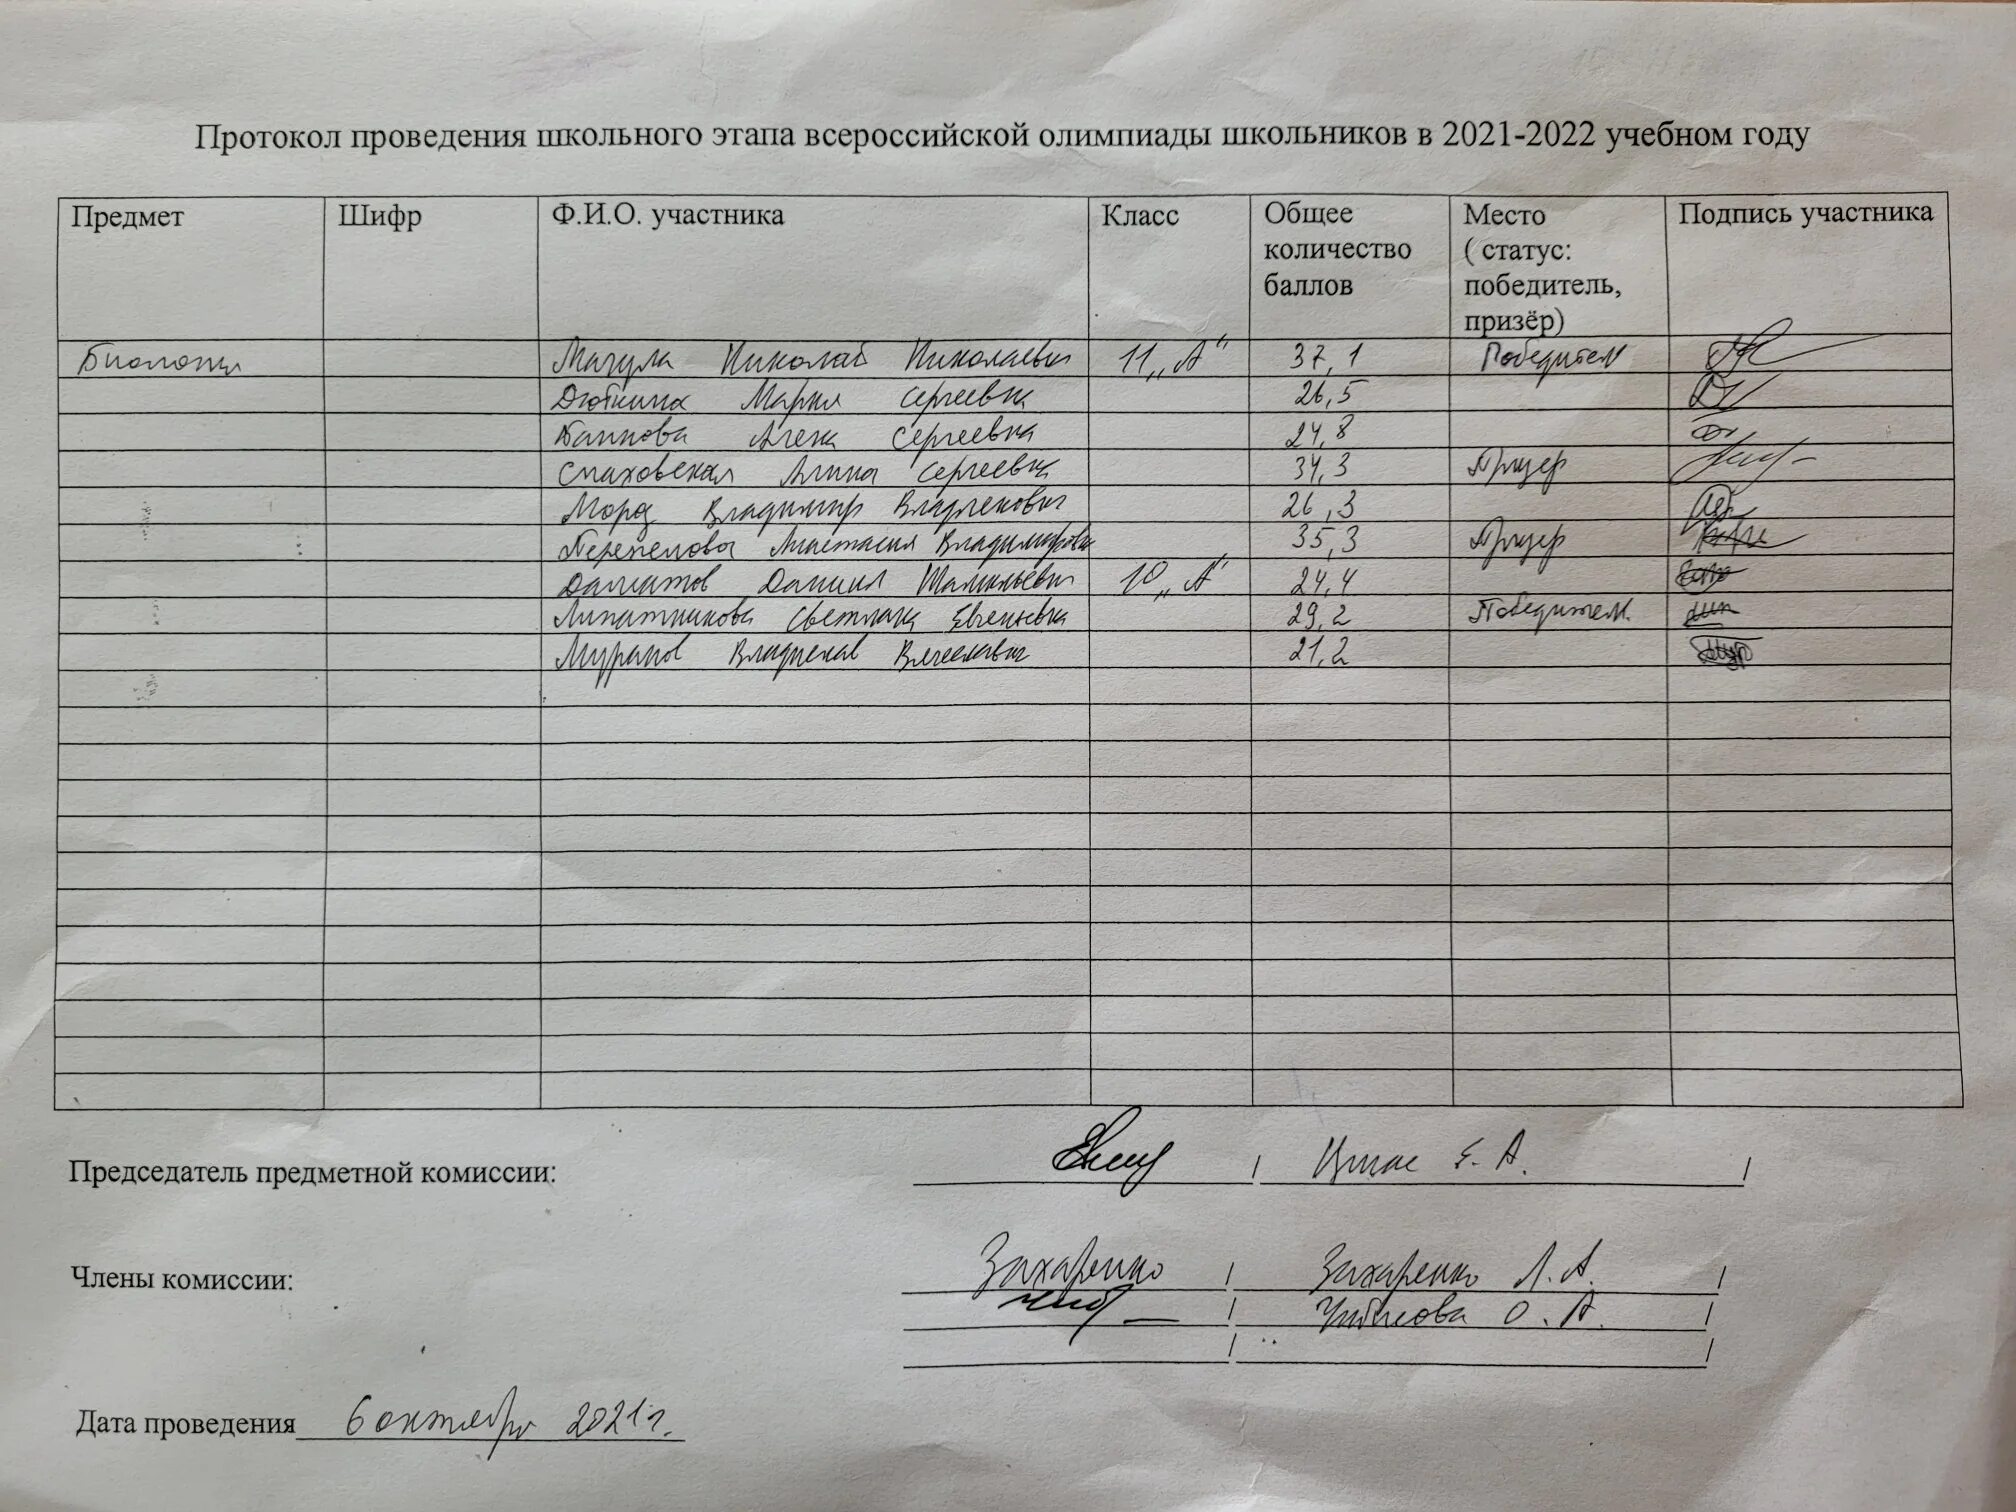 Протокол проведения школьного этапа всероссийской олимпиады школьников в 2021-2022 учебном году
Предмет Шифр Ф.И.О. участника Класс Общее количество баллов Место ( статус: победитель, призёр) Подпись участника
Биология Мачула Николай Николаевич 11 „А“ 37,1 Победитель
Мария Сергеевна 26,5
Алена Сергеевна 24,8
Спаховская Алина Сергеевна 34,3 Призер
Мороз Владимир Владленович 26,3
Перепелова Анастасия Владимировна 35,3 Призер
Далматов Даниил Шамильевич 10 „А“ 24,4
Липатникова Светлана Евгеньевна 29,2 Победитель
Муранов Владислав Вячеславович 21,2
Председатель предметной комиссии: Е. А.
Члены комиссии: Захаренко Захаренко Л.А.
Чибисова О.А.
Дата проведения 6 октября 2021 г.